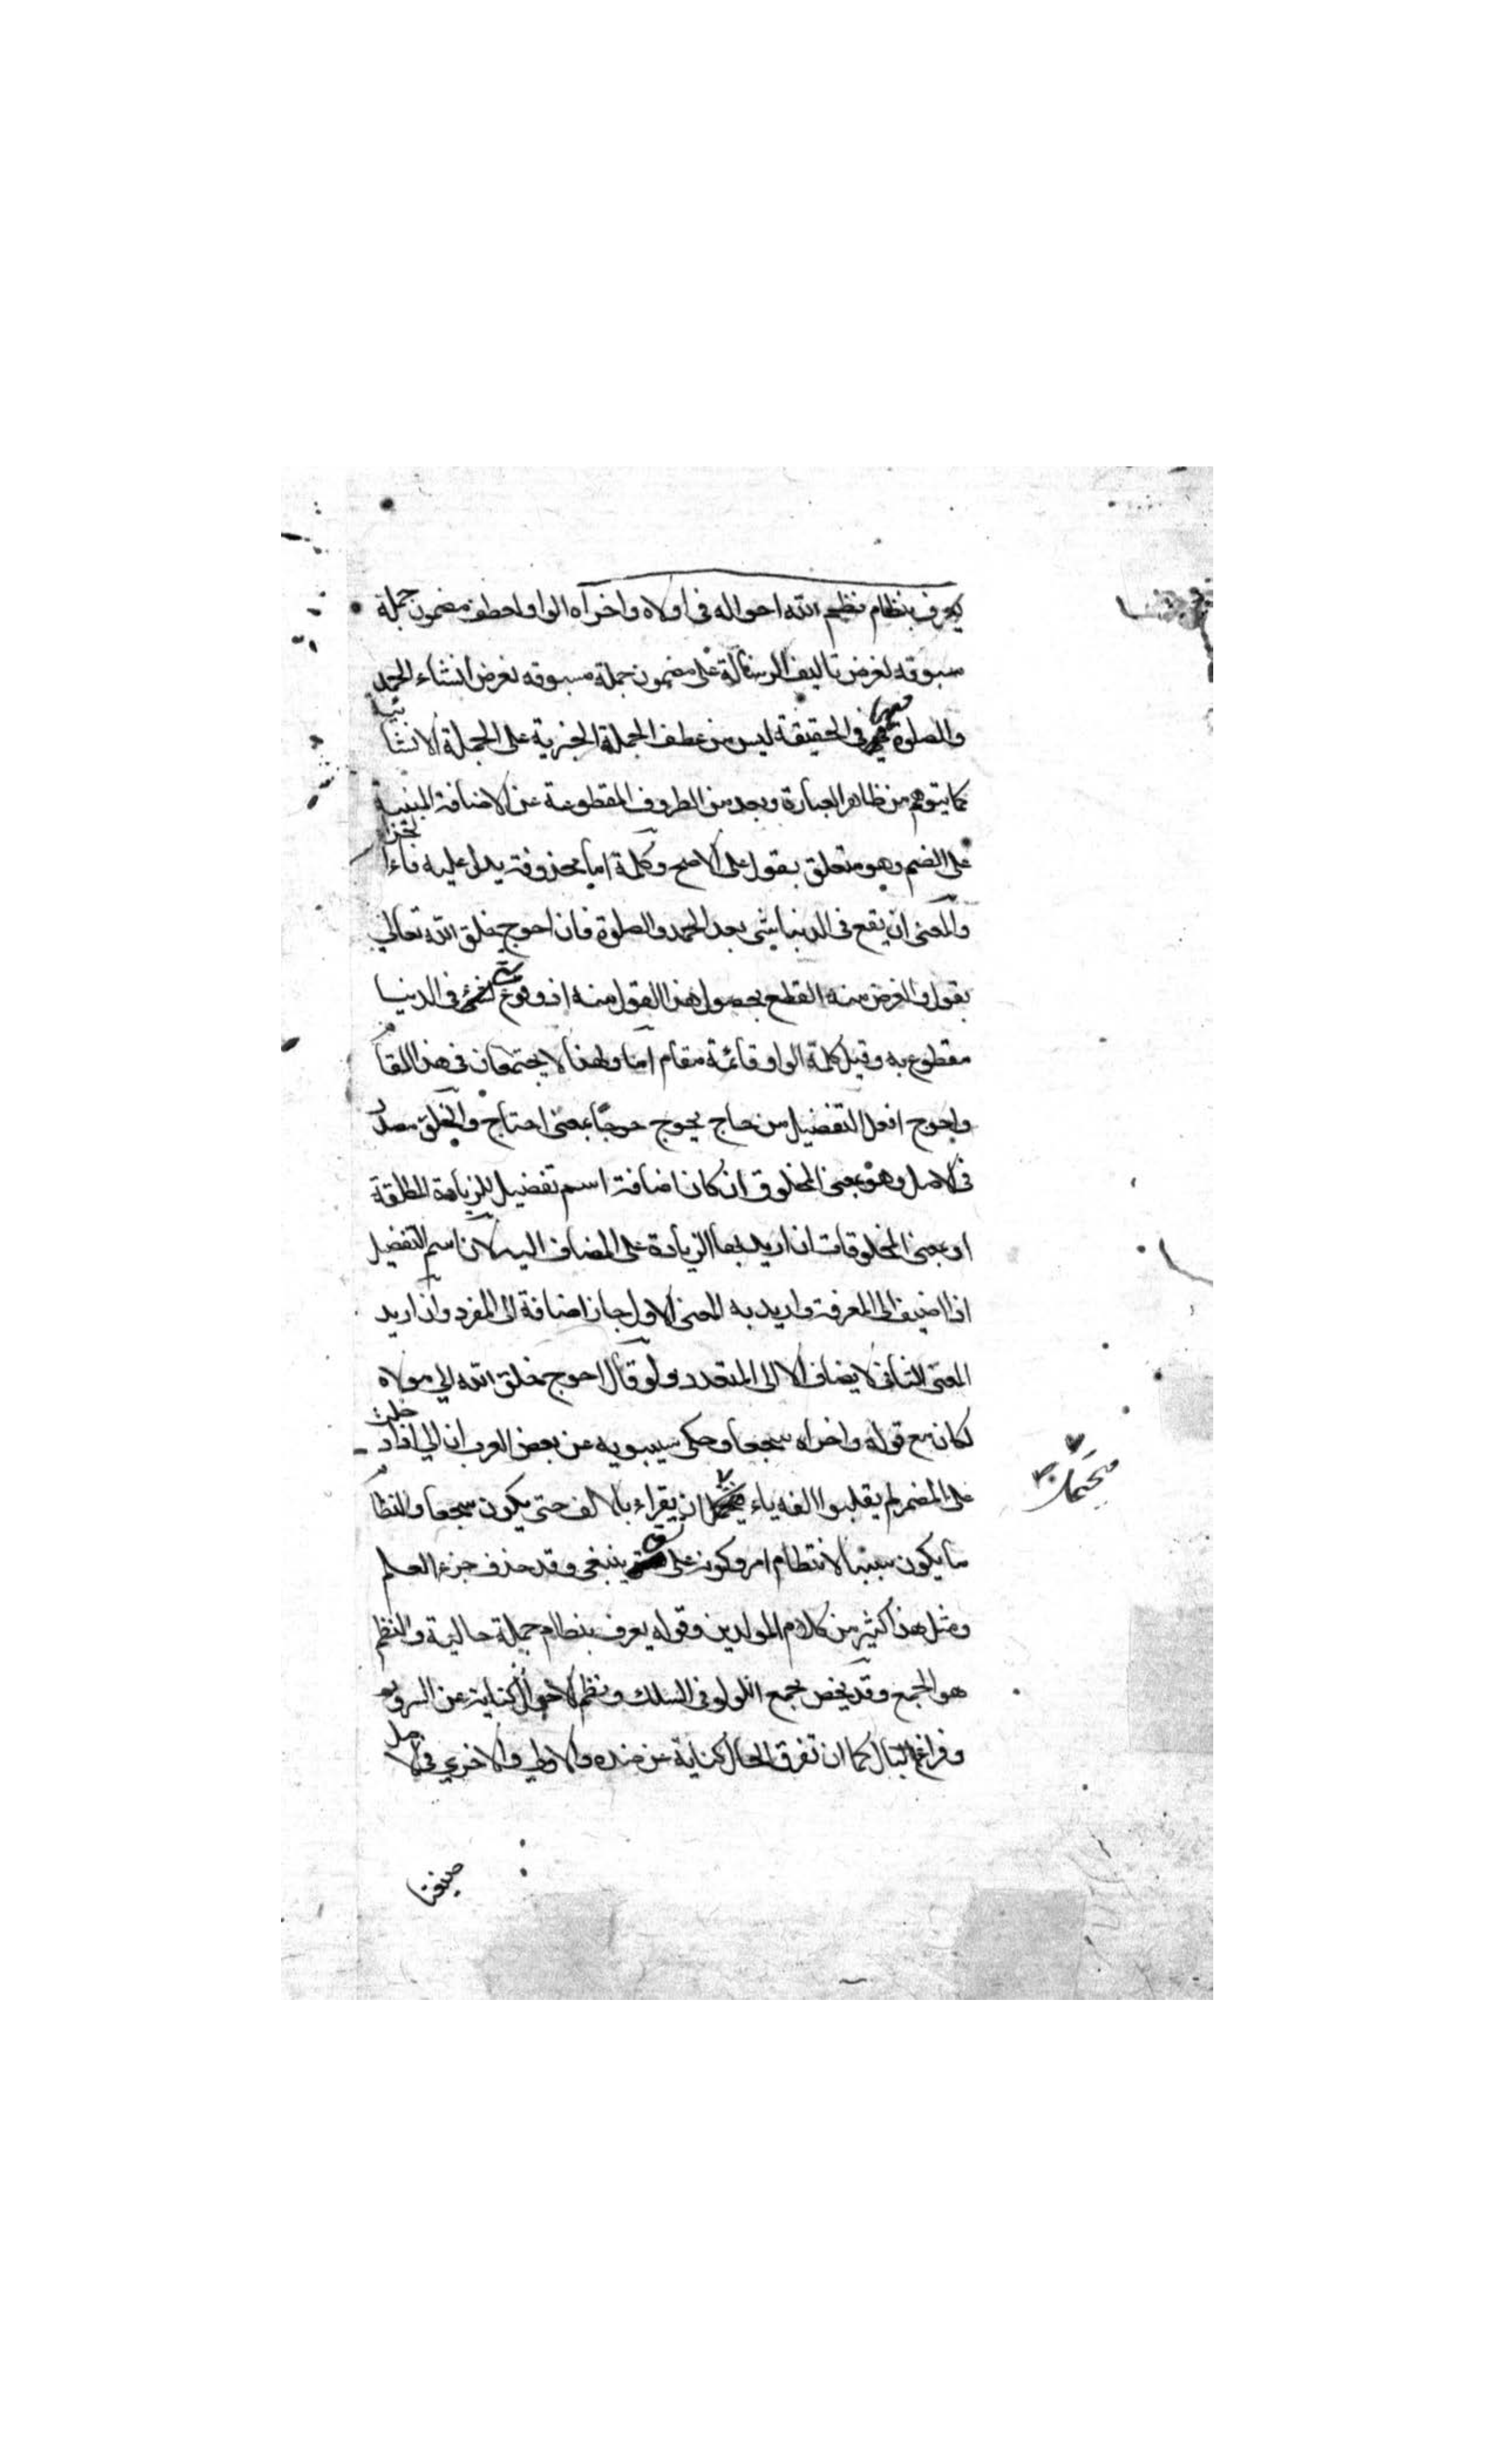 يعرف بنظام نظم الله احواله فى اولاه واخراه الواو لعطف مضمون جملة
مسوقه لغرض تاليف الرسالة على مضمون جملة مسبوقه لغرض انشاء الحمد
والصلوة فهى فى الحقيقة ليس من عطف الجملة الخبرية على الجملة الانشائية
كما يتوهم من ظاهر العبارة وبعد من الظروف المقطوعة عن الاضافة المبنية
على الضم وهو متعلق بقول على الاصح وكلمة اما محذوفة يدل عليه فاء الجزا
والمعنى ان يقع فى الدنيا شى بعد الحمد والصلوة فان احوج خلق الله تعالى
يقول والغرض منه القطع بحصول هذا القول منه اذ وقوع شئ فى الدنيا
مقطوع به وقيل كلمة الواو قائمة مقام اما ولهذا لا يجتمعان فى هذا المقام
واحوج افعل التفضيل من حاج يحوج حوجا بمعنى احتاج والخلق مصدر
فى الاصل وهو بمعنى المخلوق ان كان اضافة اسم تفضيل للزيادة المطلقة
او بمعنى المخلوقات ان اريد بها الزيادة على المضاف اليه لان اسم التفضيل
اذا اضيف الى المعرفة واريد به المعنى الاول جاز اضافة الى المفرد وان اريد
المعنى الثانى لا يضاف الا الى المتعدد ولو قال احوج خلق الله الي مولاه
لكان مع قوله واخراه سجعا وحكى سيبويه عن بعض العرب ان الي اذا دخلت
على المضمر لم يقلبوا الفه ياء فيحتمل ان يقراء بالالف حتى يكون سجعا والنظام
ما يكون سببا لانتظام امر وكونه على ينبغى وقد حذف جزء العلم
ومثل هذا كثير من كلام المولدين وقوله يعرف بنظام جملة حالية والنظم
هو الجمع وقد يخص بجمع اللولو فى السلك ونظم الاحوال كناية عن السرور
وفراغ البال كما ان تفرق الحال كناية عن ضده والاولي والاخري فى الاصل
فيحتمل
صيغتا